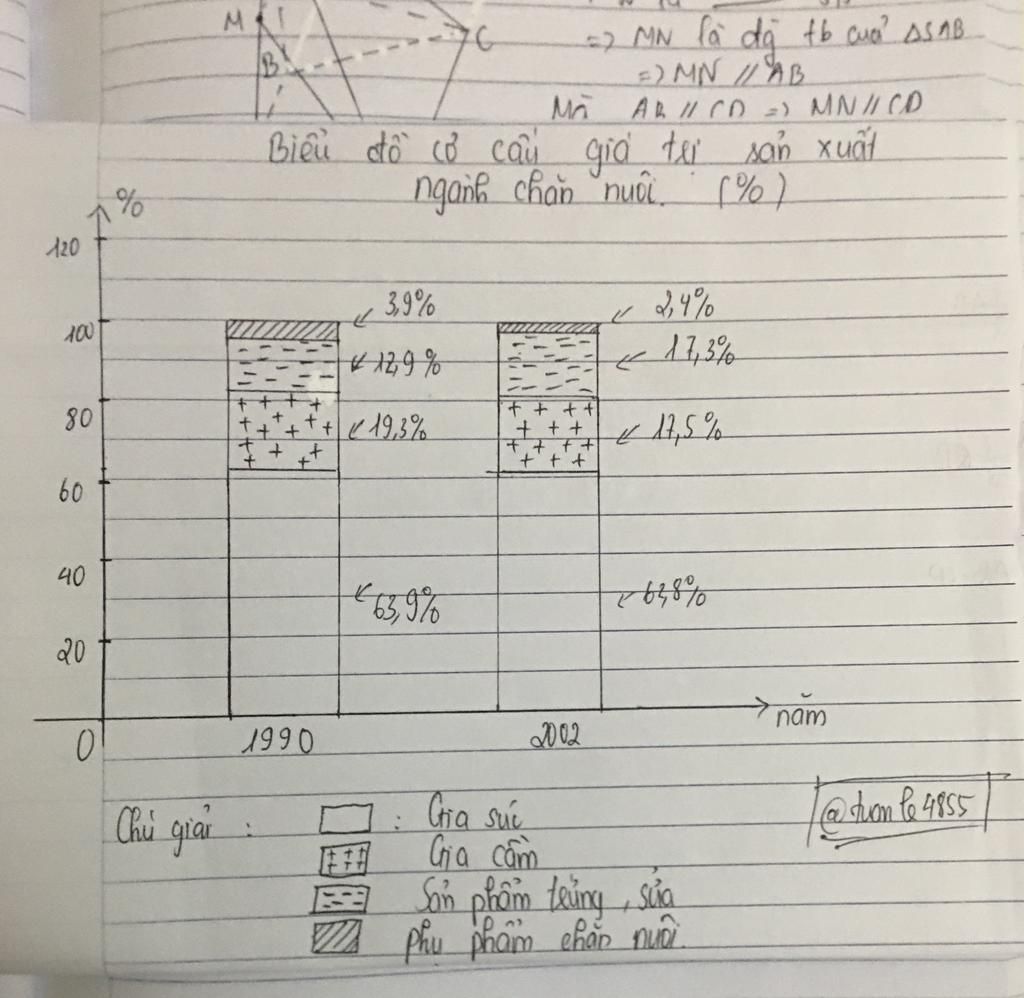 M
C
B
=> MN là đg tb cuả ΔSAB
=> MN // AB
Mà AB // CD => MN // CD
Biểu đồ cơ cấu giá trị sản xuất
ngành chăn nuôi. (%)
%
120
100
80
60
40
20
0
3,9%
12,9%
19,3%
63,9%
2,4%
17,3%
17,5%
63,8%
1990
2002
năm
Chú giải :
: Gia súc
Gia cầm
Sản phẩm trứng, sữa
phụ phẩm chăn nuôi.
@tuanle4855